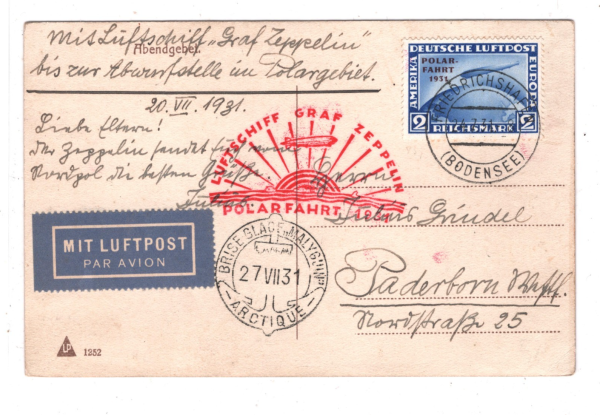 Mit Luftschiff „Graf Zeppelin"
Abendgebet.
bis zur Abwurfstelle im Polargebiet.
20. VII. 1931.
Liebe Eltern!
Der Zeppelin sendet für vom
Nordpol die besten Grüße.
DEUTSCHE LUFTPOST
AMERIKA
EUROPA
POLAR-
FAHRT
1931
2
2
REICHSMARK
FRIEDRICHSHAFEN
7.31
(BODENSEE)
LUFTSCHIFF GRAF ZEPPELIN
POLARFAHRT 1931
Herrn
Julius Gründel
Paderborn Westf.
Nordstraße 25
MIT LUFTPOST
PAR AVION
BRISE GLACE "MALYGUINE"
27 VII 31
ARCTIQUE
LP
1352